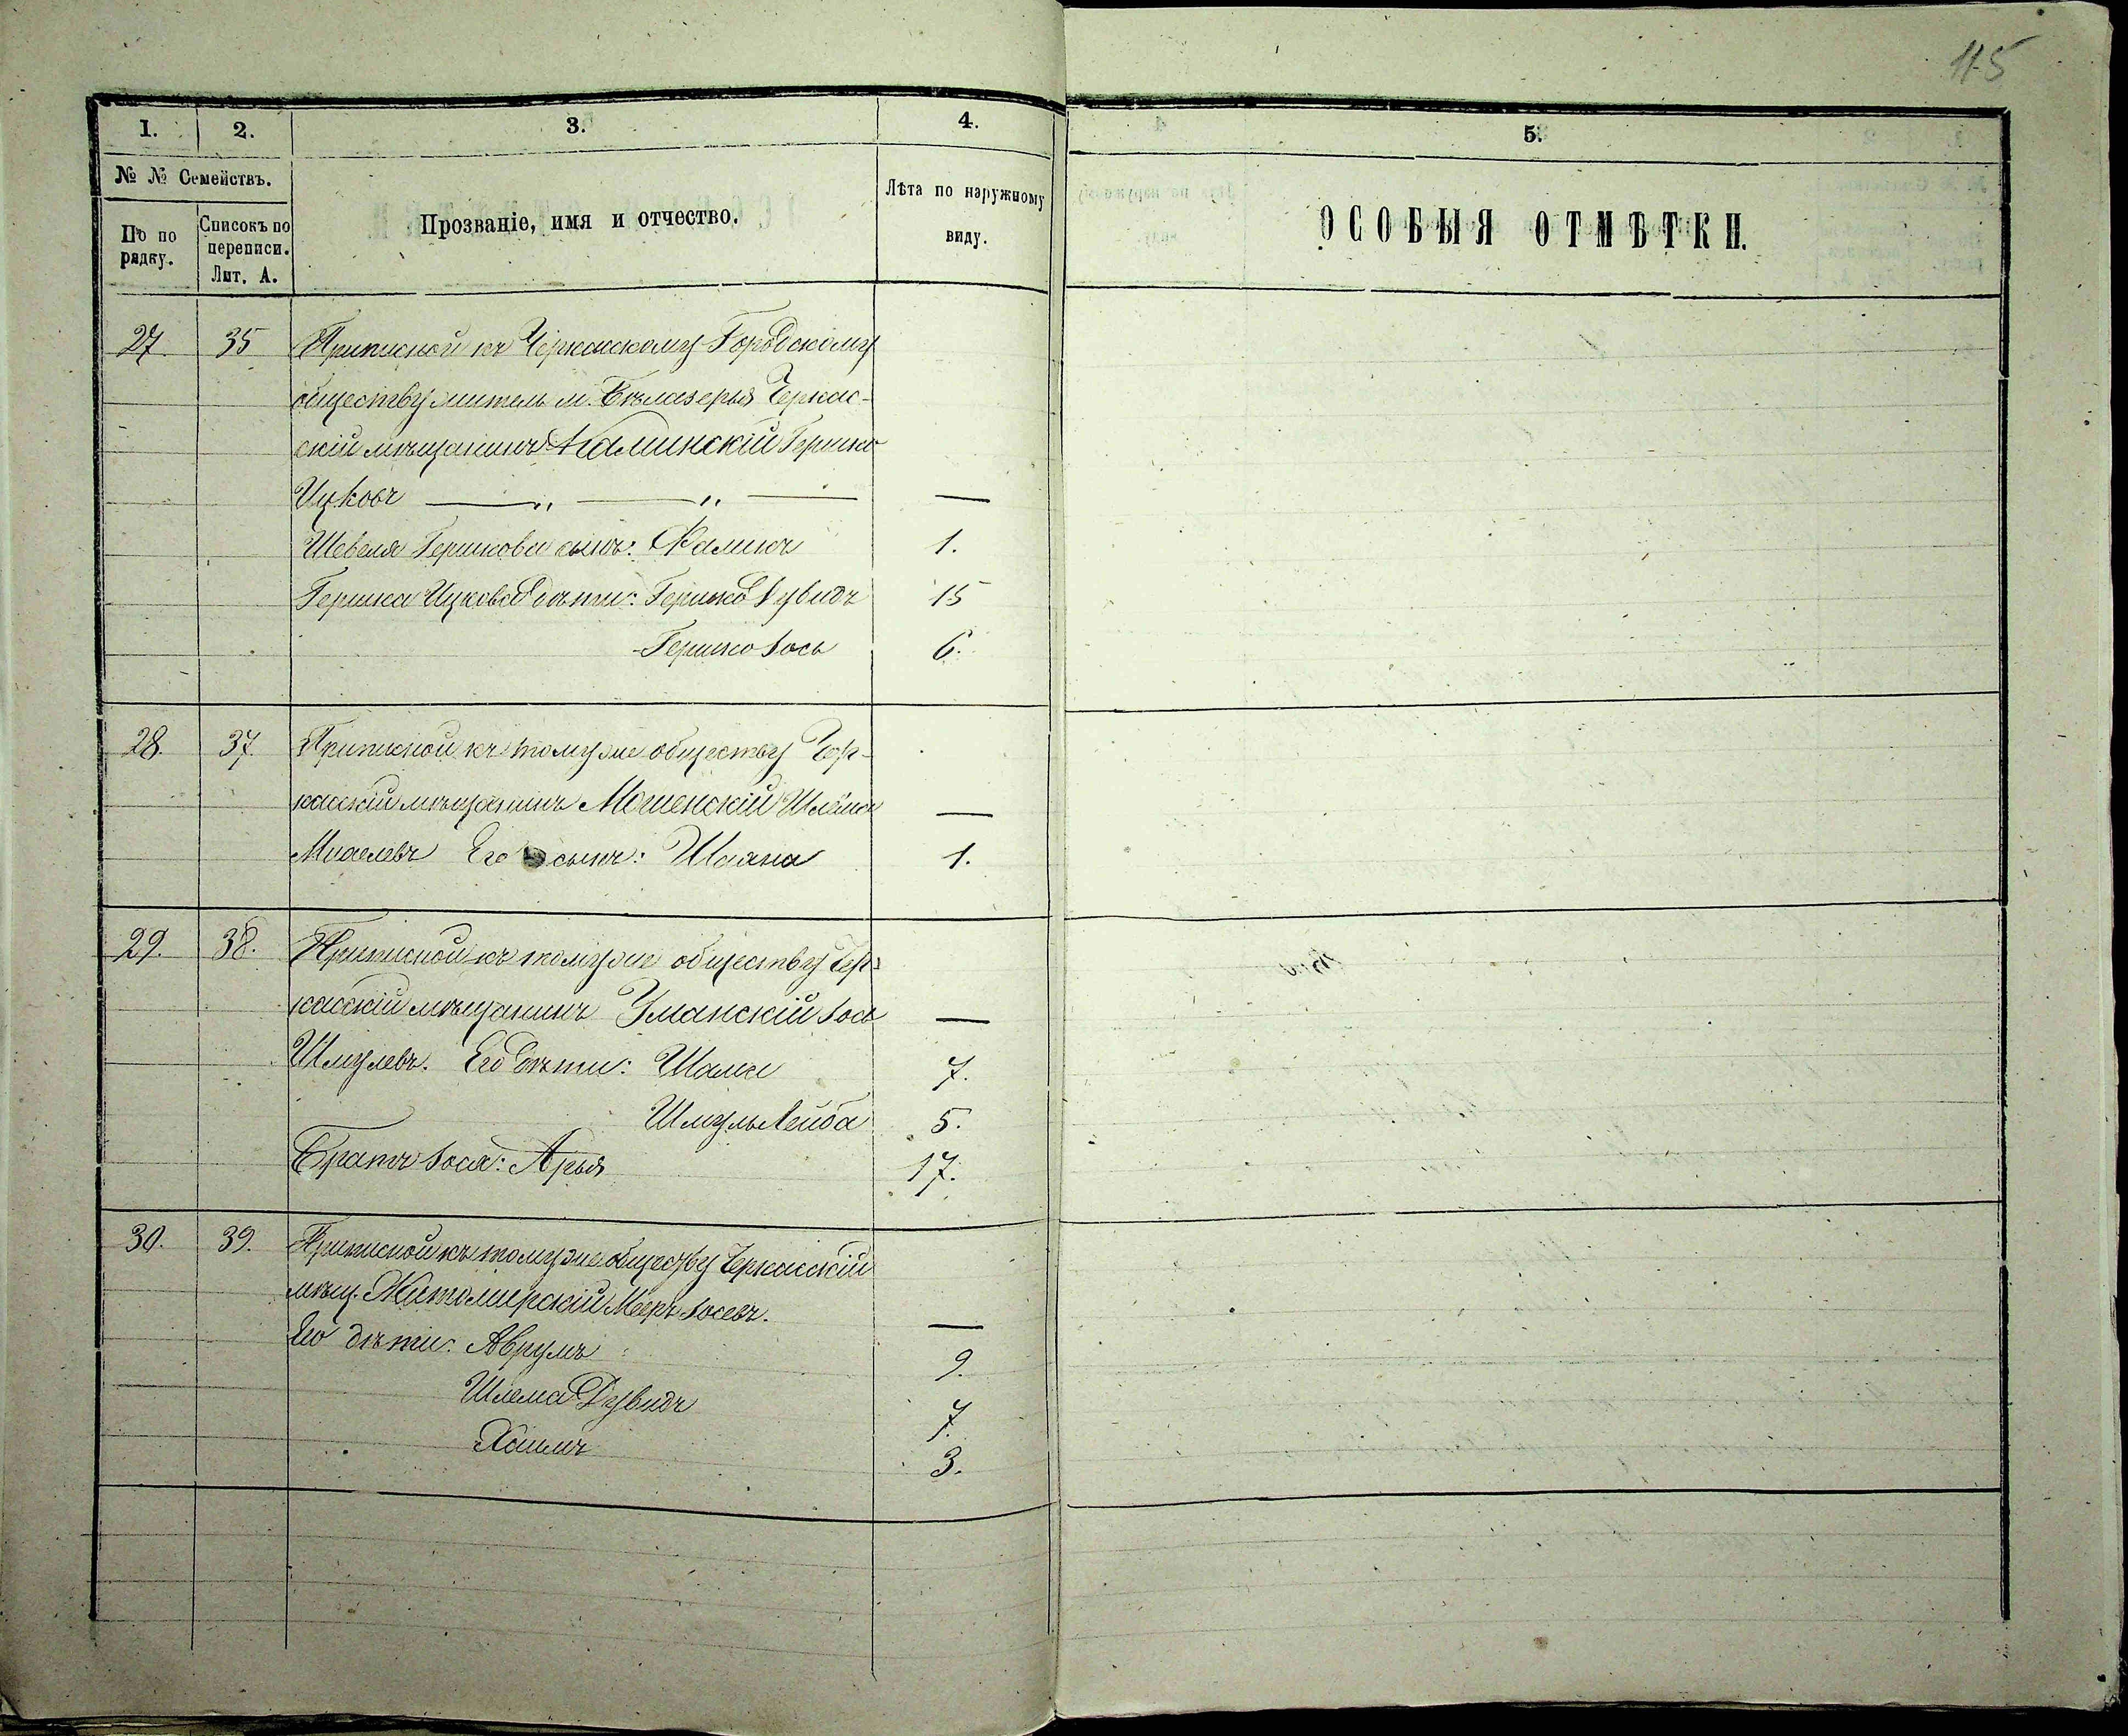 115
1. 2. 3. 4. 5.
№ № Семействъ.
По по рядку.
Списокъ по переписи. Лит. А.
Прозваніе, имя и отчество.
Лѣта по наружному виду.
ОСОБЫЯ ОТМѢТКИ.
27. 35 Приписной къ Черкасскому Городскому
обществу житель м. Бѣлазерья Черкас-
скій мѣщанинъ Калинскій Гершко
Ицковъ — „ — „ — —
Шевеля Гершкова сынъ: 1.
Гершка Ицкова дѣти: Гершко Дувидъ 15
Гершко Іось 6.
28. 37. Приписной къ тому же обществу Чер-
касскій мѣщанинъ Мошенскій —
Его сынъ: Шаяна 1.
29. 38. Приписной къ тому же обществу Чер-
касскій мѣщанинъ Уманскій Іось —
Шмулевъ. Его дѣти: 7.
Шмуль Лейба 5.
Братъ Іося: Арья 17.
30. 39. Приписной къ тому же обществу Черкасскій
мѣщ. Житомирскій Мееръ Іосевъ. —
Его дѣти: Аврумъ 9.
Шлема Дувидъ 7.
Хаимъ 3.